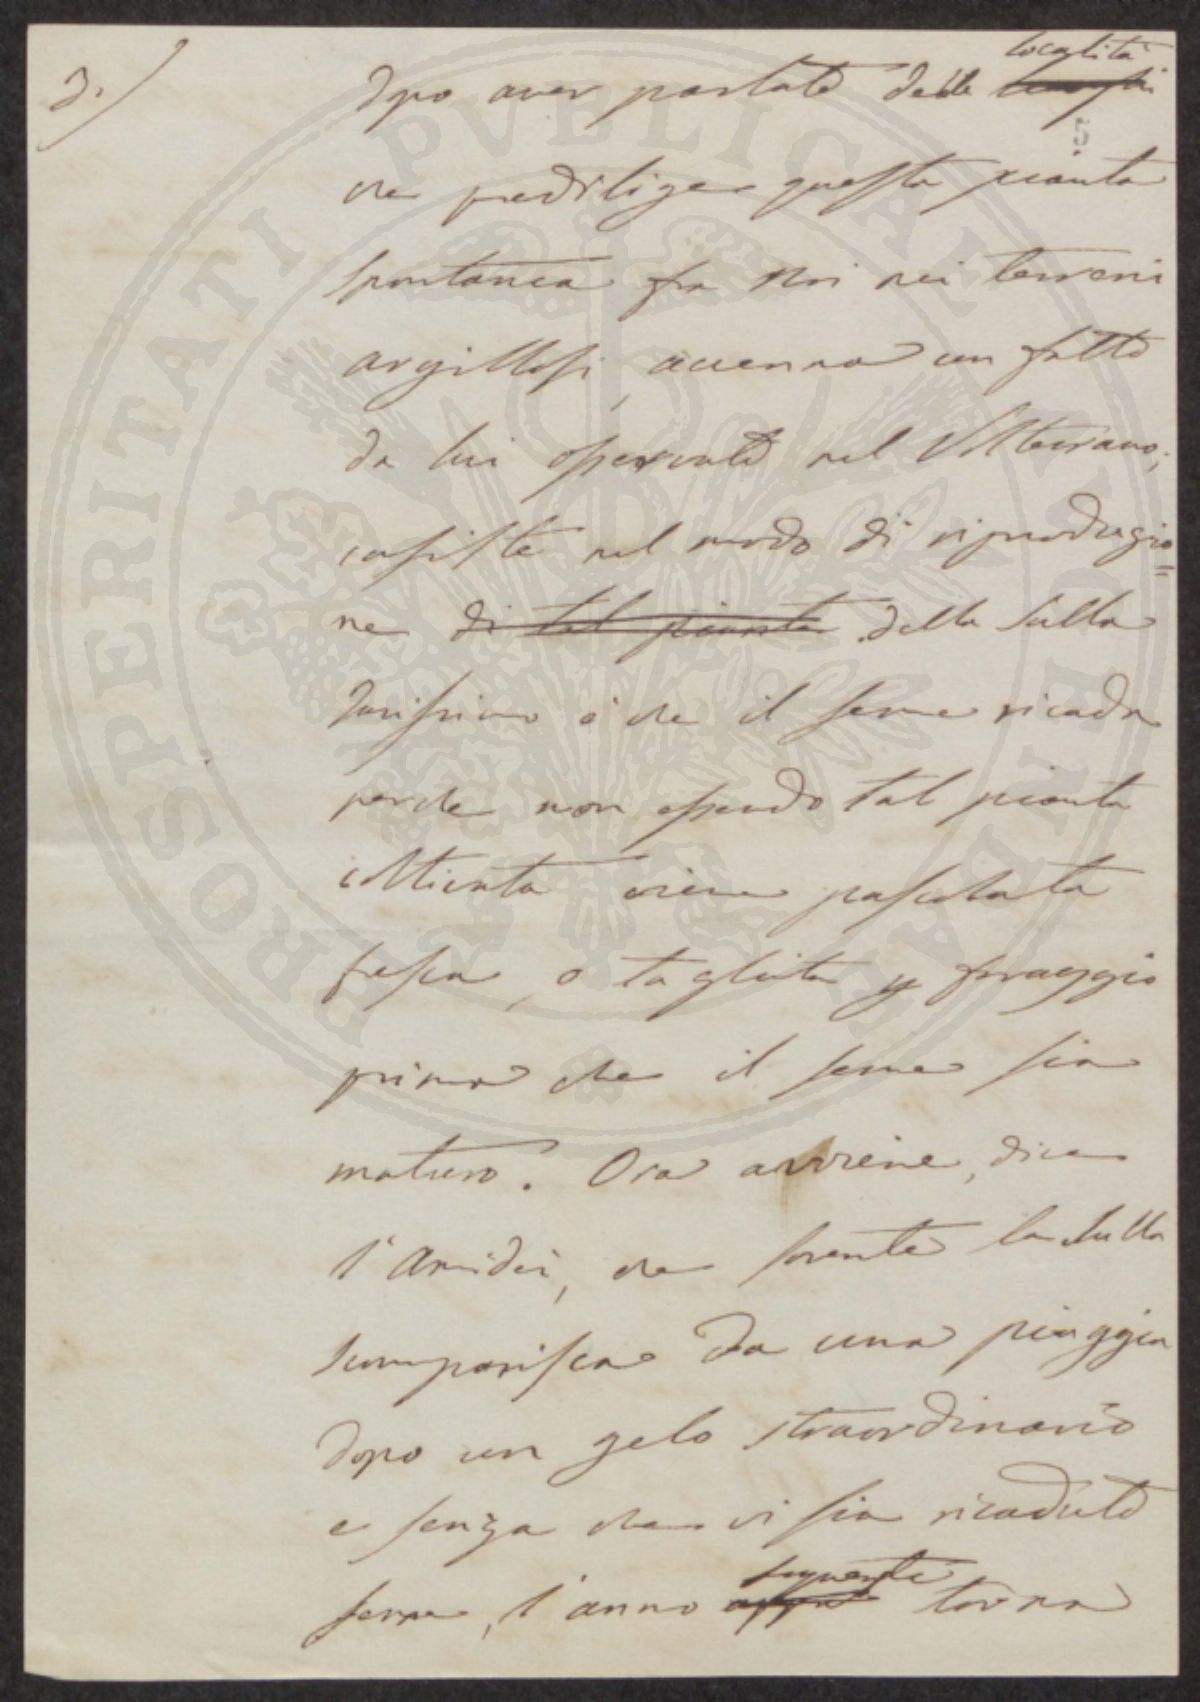 3.)
località
dopo aver parlato delle luoghi
5
che predilige questa pianta
spontanea fra Noi nei terreni
argillosi, accenna un fatto
da lui osservato nel Volterrano,
consiste nel modo di riproduzio=
ne di tal pianta della Sulla
rarissimo è che il seme ricada
perche non essendo tal pianta
coltivata viene pascolata
fresca, o tagliata p foraggio
prima che il seme sia
maturo. Ora avviene, dice
l'Amidei, che sovente la Sulla
scomparisca da una piaggia
dopo un gelo straordinario
e senza che vi sia ricaduto
seguente
seme, l'anno appo torna
PROSPERITATI PVBLICAE AVGENDAE